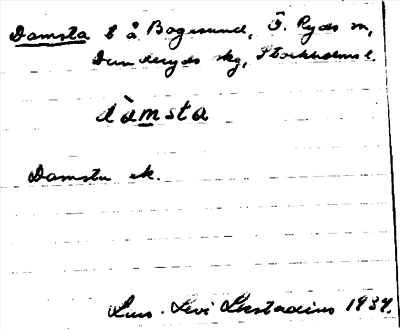 Damsta t å Bogesund, Ö. Ryds sn,
Danderyds skg, Stockholms l.
dàmsta
Damsta ek.
Lars-Levi Læstadius 1934.